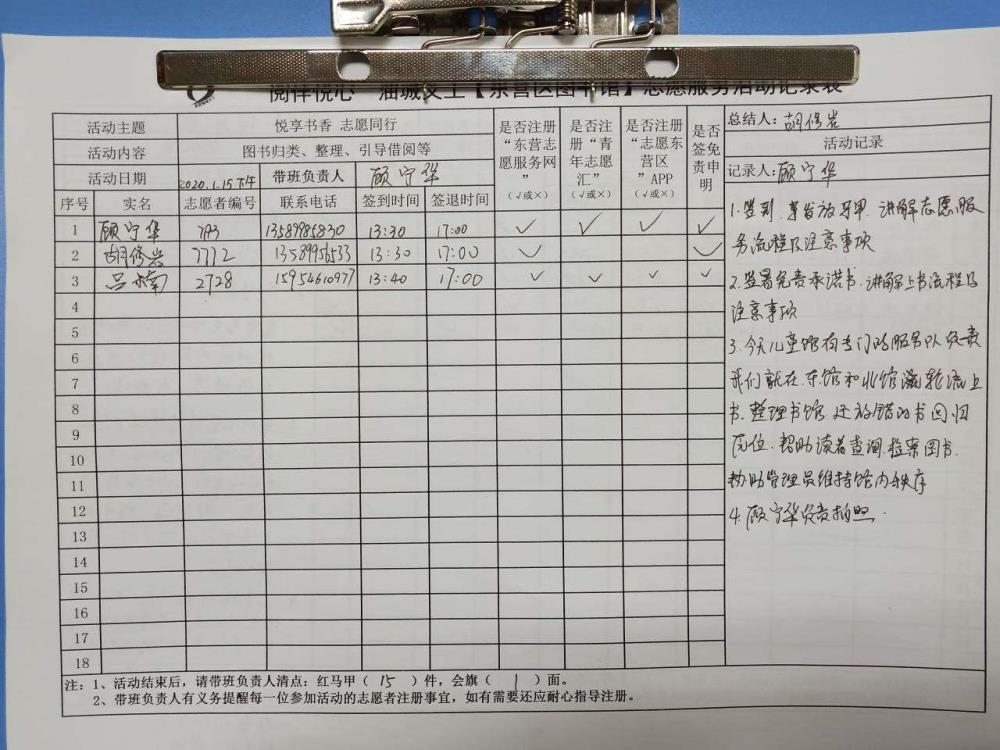 阅伴悦心 油城义工【东营区图书馆】志愿服务活动记录表
活动主题 悦享书香 志愿同行
活动内容 图书归类、整理、引导借阅等
活动日期 2020.1.15下午 带班负责人 顾宁华
序号 实名 志愿者编号 联系电话 签到时间 签退时间
是否注册“东营志愿服务网”(√或×)
是否注册“青年志愿汇”(√或×)
是否注册“志愿东营区”APP(√或×)
是否签免责申明
1 顾宁华 793 13589985830 13:30 17:00 √ √ √ √
2 胡修岩 7712 13589956533 13:30 17:00 √ √
3 吕 2728 15954610977 13:40 17:00 √ √ √ √
4
5
6
7
8
9
10
11
12
13
14
15
16
17
18
总结人：胡修岩
活动记录
记录人：顾宁华
1.签到,发放马甲.讲解志愿服
务流程及注意事项
2.签署免责承诺书.讲解上书流程及
注意事项
3.今天儿童馆有专门的服务队负责
我们就在东馆和北馆轮流上
书.整理书馆.还放错的书回归
原位.帮助读者查询.检索图书.
协助管理员维持馆内秩序
4.顾宁华负责拍照.
注：1、活动结束后，请带班负责人清点：红马甲（ 15 ）件，会旗（ 1 ）面。
2、带班负责人有义务提醒每一位参加活动的志愿者注册事宜，如有需要还应耐心指导注册。